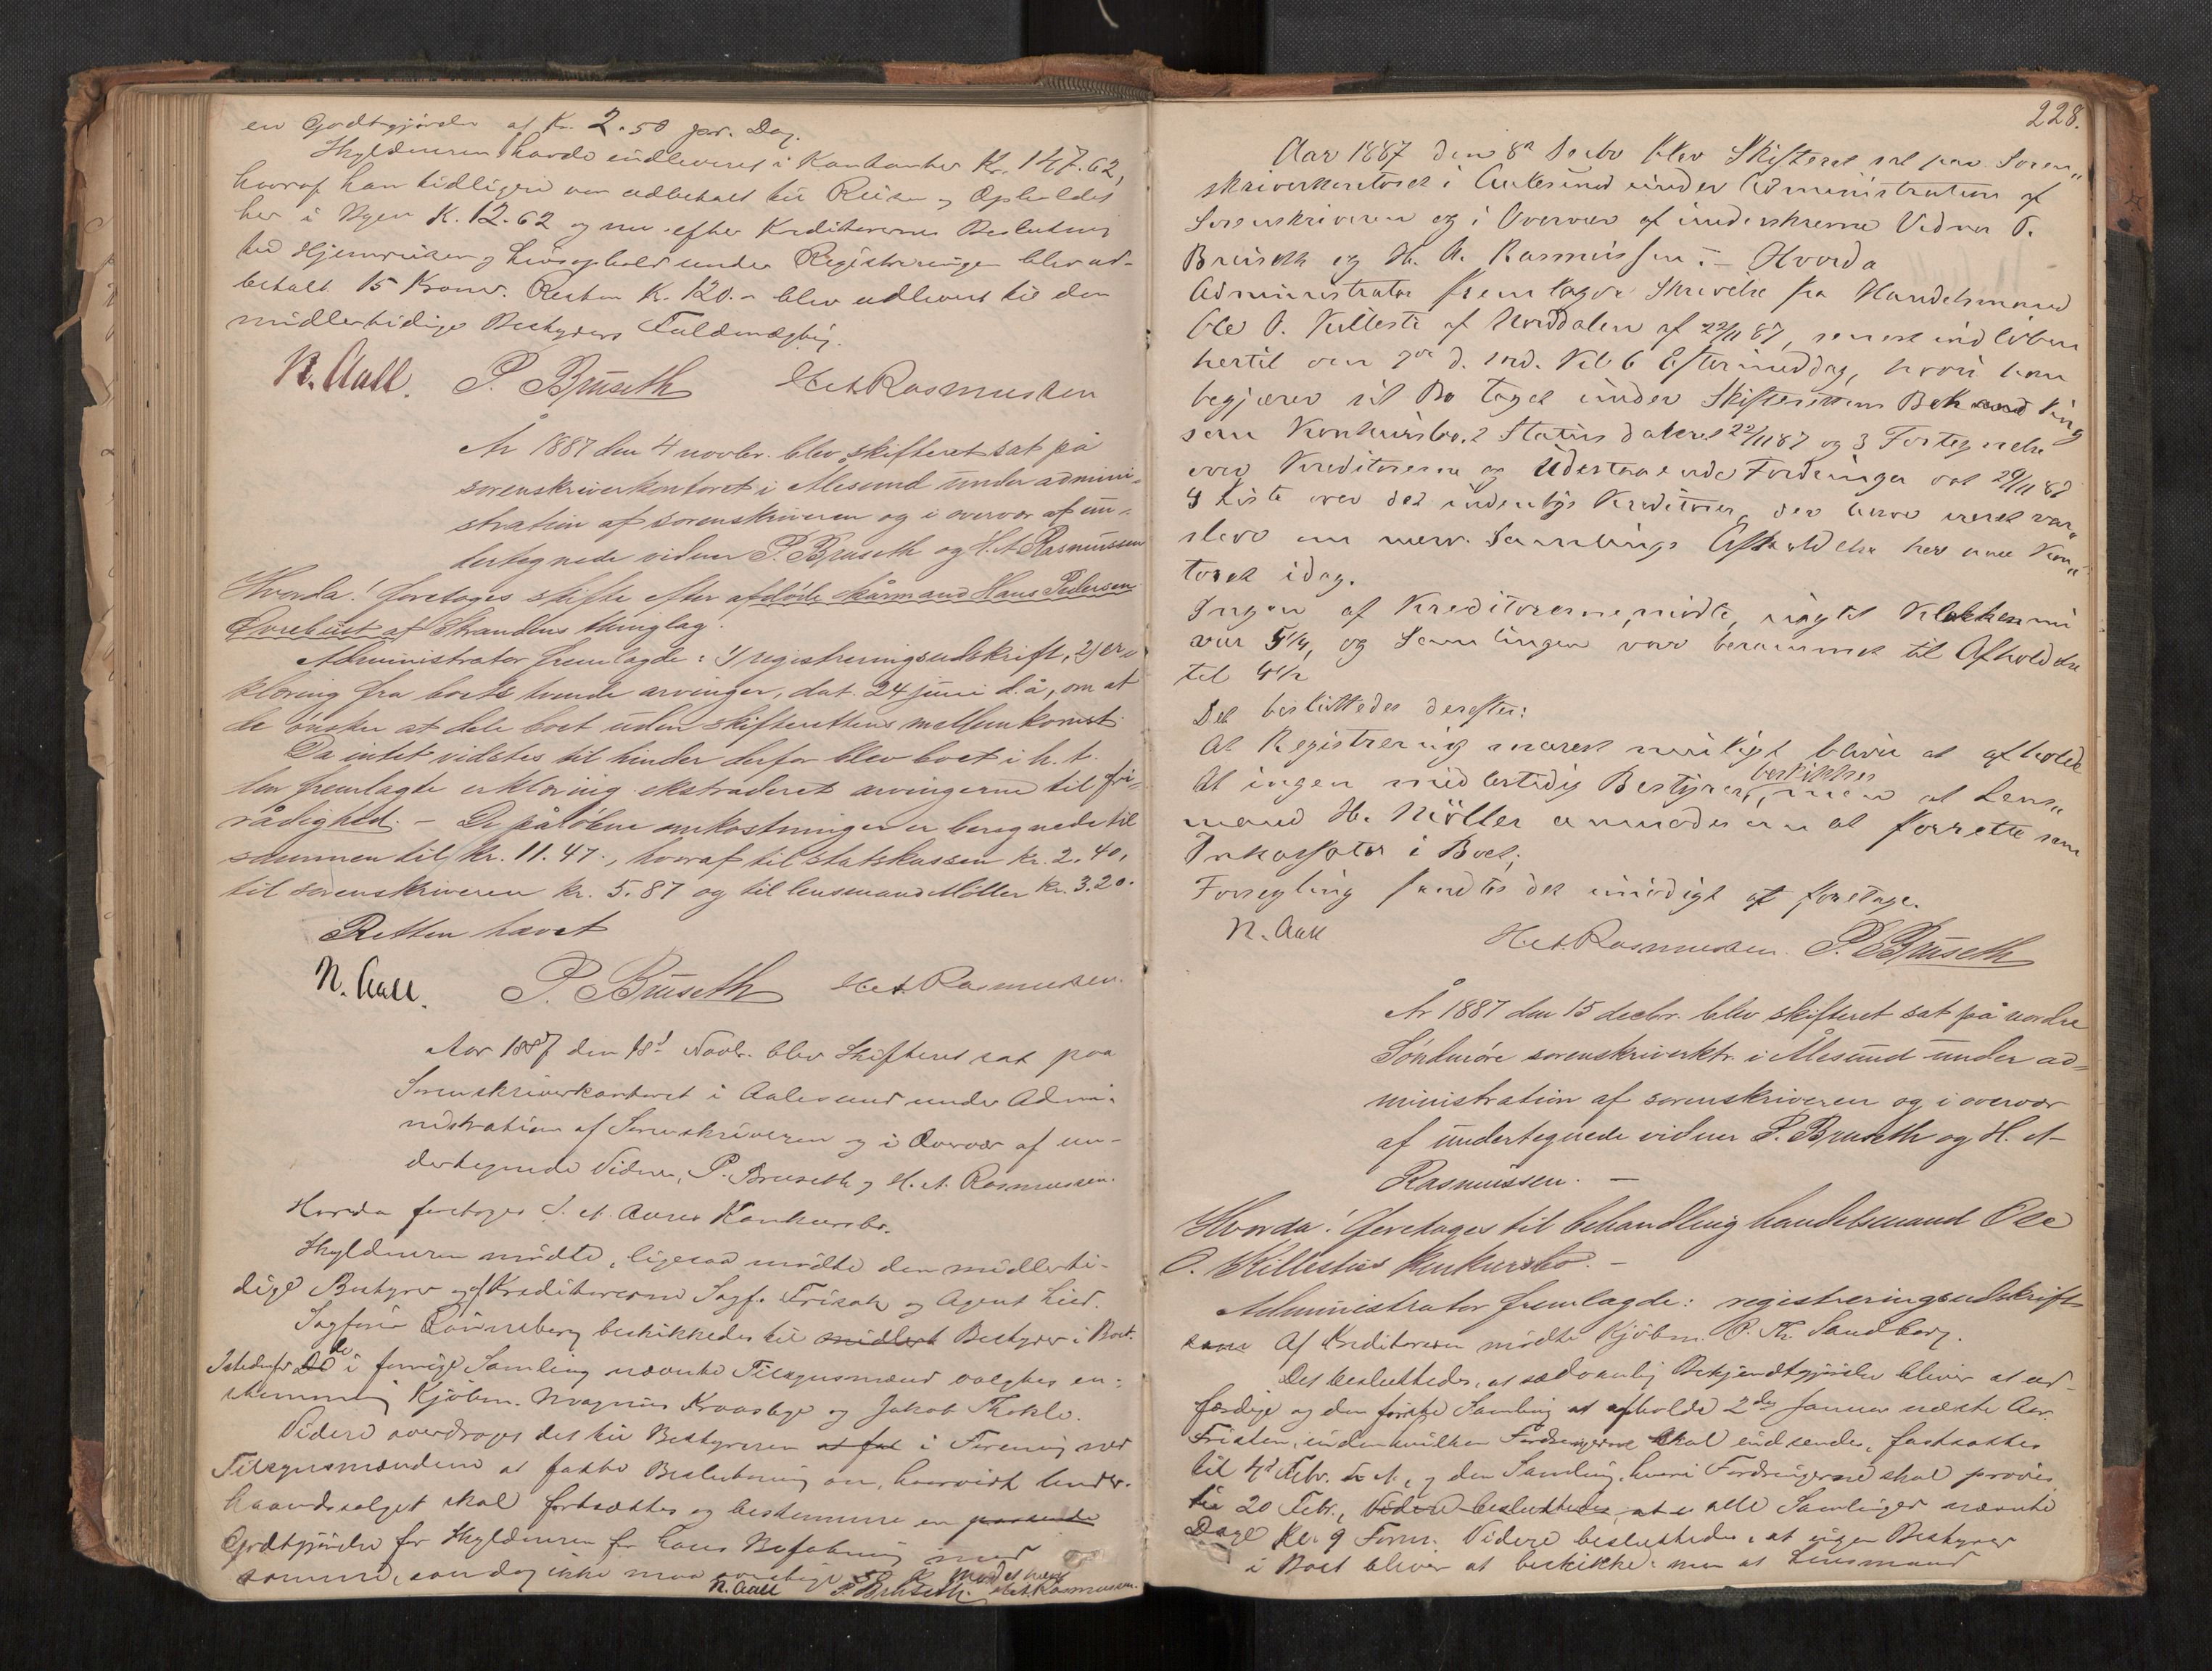 en Godtgjørelse af Kr. 2.50 pr. Dag.
Skyldneren havde indleveret i Kontanter Kr. 147.62,
hvoraf han tidligere var udbetalt til Reisen og Opholdet
her i Byen K. 12.62 og nu efter Kreditorernes Beslutning
til Hjemreisen og Livsophold under Registreringen blev ud-
betalt 15 Kroner. Resten K. 120.- blev udleveret til den
midlertidige Bestyrers Fuldmægtig.
N. Aall. P. Bruseth H.A. Rasmussen
År 1887 den 4 novbr. blev skifteret sat på
sorenskriverkontoret i Ålesund under admini-
stration af sorenskriveren og i overvær af un-
dertegnede vidner P. Bruseth og H.A. Rasmussen
Hvorda! foretoges skifte efter afdøde kårmand Hans Pedersen
Øvrebust af Strandens thinglag.
Administrator fremlagde: 1) registreringsudskrift, 2) er-
klæring fra boets arvinger, dat. 24 juni d.å., om at
de ønsker at dele boet uden skifterettens mellemkomst.
Da intet vidstes til hinder derfor blev boet i h. t.
den fremlagte erklæring ekstraderet arvingerne til fri-
rådighed. - De påløbne omkostninger er beregnede til
sammen til kr. 11.47, hvoraf til statskassen kr. 2.40,
til sorenskriveren kr. 5.87 og til lensmand Møller kr. 3.20.
Retten hævet
N. Aall. P. Bruseth H.A. Rasmussen.
Aar 1887 den 18d Novbr. blev Skifteret sat paa
Sorenskriverkontoret i Aalesund under Admi-
nistration af Sorenskriveren og i Overvær af un-
dertegnede Vidner, P. Bruseth og H. A. Rasmussen.
Hvorda foretoges S. A. Konkursbo.
Skyldneren mødte, ligesaa mødte den midlerti-
dige Bestyrer og af Kreditorerne Sagf. Frisak og Agent Lied.
Sagfører Rønneberg beskikkedes til midlert Bestyrer i Boet.
Istedenfor De de i forrige Samling nævnte Tilsynsmænd valgtes en-
stemmig Kjøbm. Magnus Kraastge og Jakob Thokle.
Videre overdroges det til Bestyreren at fat i Forening med
Tilsynsmændene at fatte Beslutning om, hvorvidt Under-
haandssalget skal fortsættes og bestemme en passende
Godtgjørelse for Skyldneren for hans Befatning med
samme, som dog ikke maa overstige Mødet hævet
N. Aall P. Bruseth. H.A. Rasmussen.
228.
Aar 1887 den 8de Decbr blev Skifteret sat paa Soren-
skriverkontoret i Aalesund under Administration af
Sorenskriveren og i Overvær af underskrevne Vidner P.
Bruseth og H. A. Rasmussen. - Hvorda
Administrator fremlagde Skrivelse fra Handelsmand
Ole O. Killesti af Norddalen af 22/11 87, senest indløben
hertil den 7de d. Md. Kl. 6 Eftermiddag, hvori han
begjærer sit Bo taget under Skifterettens Behandling
som Konkursbo. 2 Status dateret 22/11 87 og 3 Fortegnelse
over Kreditorerne og Udestaaende Fordringer dat 29/11 87
4 Liste over det indenbys Kreditorer, der have været var-
slede om nærv. Samlings Afholdelse her paa Kon-
toret idag.
Ingen af Kreditorerne mødte, uagtet Klokken nu
var 5 1/4, og Samlingen var berammet til Afholdelse
til 4 1/2
Det besluttedes derefter:
At Registrering snarest muligt bliver at afholde
At ingen midlertidig Bestyrer beskikkes, men at Lens-
mand H. Møller anmodes om at forrette som
Inkassator i Boet;
Forsegling fandtes det unødigt at foretage.
N. Aall H.A. Rasmussen. P. Bruseth
År 1887 den 15 decbr. blev skifteret sat på nordre
Søndmøre sorenskriverktr. i Ålesund under ad-
ministration af sorenskriveren og i overvær
af undertegnede vidner P. Bruseth og H. A.
Rasmussen. -
Hvorda! foretoges til behandling handelsmand Ole
O. Killesties konkursbo. -
Administrator fremlagde: registreringsudskrift
Af Kreditorerne mødte Kjøbm. P. Th. Sandborg.
Det besluttedes, at sædvanlig Bekjendtgjørelse bliver at ud-
færdige og den første Samling at afholde 2den Januar næste Aar.
Fristen, inden hvilken Fordringerne skal indsendes, fastsattes
til 4d Febr. s. A., og den Samling, hvori Fordringerne skal prøves
til 20 Febr., Videre besluttedes, at alle Samlinger nævnte
Dage Kl. 9 Form. Videre besluttedes, at ingen Bestyrer
i Boet bliver at beskikke, men at Lensmand